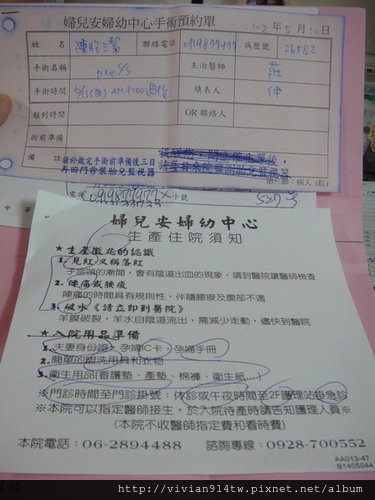 婦兒安婦幼中心手術預約單
102年5月12日
姓名
聯絡電話
病歷號 26582
手術名稱 pre c/s
主治醫師 莊
手術時間
填表人
報到時間
OR聯絡人
術前準備
備註
請於做完手術前準備後三日
再回門診裝胎兒監視器
第二聯：病人(紅)
婦兒安婦幼中心
生產住院須知
★生產徵兆的認識
1.見紅又稱落紅
子宮頸的漸開，會有陰道出血的現象，請到醫院讓醫師檢查
2.陣痛或腰痠
陣痛的時間具有規則性，伴隨腰痠及腹部不適
3.破水《請立即到醫院》
羊膜破裂，羊水自陰道流出，需減少走動，儘快到醫院
★入院用品準備
1.夫妻身份證、孕婦IC卡，孕婦手冊
2.簡單的盥洗用具和衣物
3.衛生用品(看護墊、產墊、棉褲、衛生紙....)
※門診時間至門診掛號：休診或午夜時間至2F護理站掛急診
※本院可以指定醫師接生，於入院待產時請告知護理人員※
(本院不收醫師指定費和看時費)
本院電話：06-2894488 諮詢專線：0928-700552
AA013-47
B1405044
http://vivian914tw.pixnet.net/album